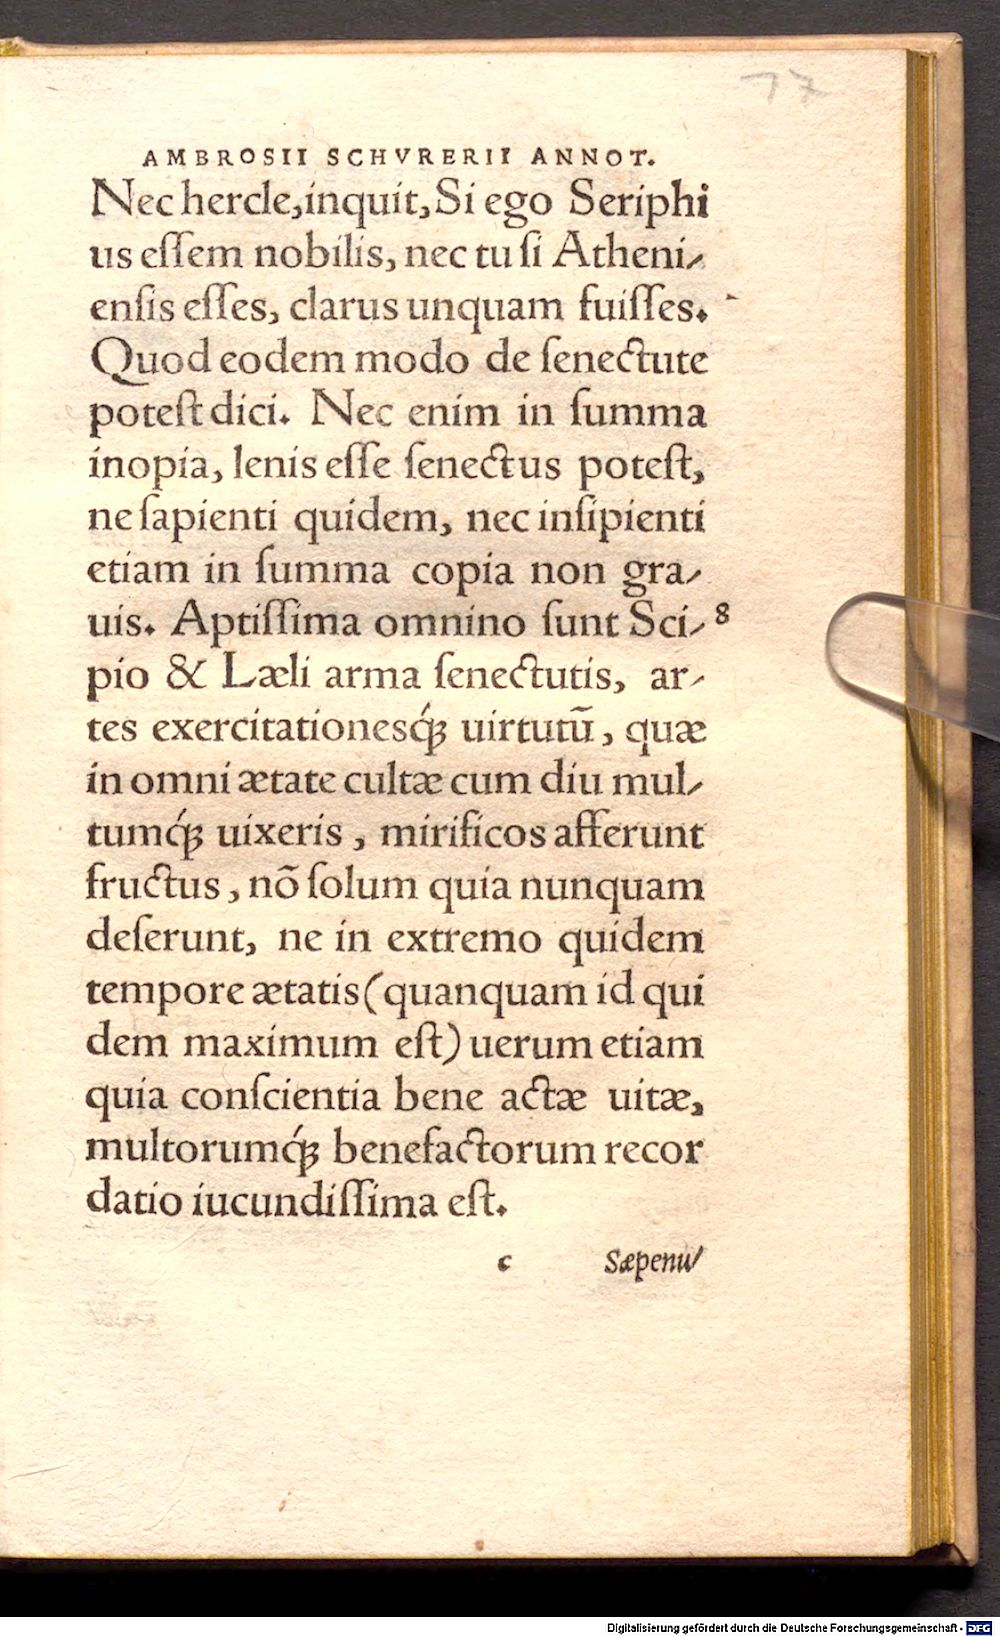 17
AMBROSII SCHVRERII ANNOT.
Nec hercle, inquit, Si ego Seriphi
us eſſem nobilis, nec tu ſi Atheni⸗
enſis eſſes, clarus unquam fuiſſes.
Quod eodem modo de ſenectute
poteſt dici. Nec enim in ſumma
inopia, lenis eſſe ſenectus poteſt,
ne ſapienti quidem, nec inſipienti
etiam in ſumma copia non gra⸗
uis. Aptiſſima omnino ſunt Sci⸗ 8
pio & Læli arma ſenectutis, ar⸗
tes exercitationesq́ꝫ uirtutū, quæ
in omni ætate cultæ cum diu mul⸗
tumq́ꝫ uixeris, mirificos afferunt
fructus, nõ ſolum quia nunquam
deſerunt, ne in extremo quidem
tempore ætatis (quanquam id qui
dem maximum eſt) uerum etiam
quia conſcientia bene actæ uitæ,
multorumq́ꝫ benefactorum recor
datio iucundiſſima eſt.
c Sæpenu⸗
Digitalisierung gefördert durch die Deutsche Forschungsgemeinschaft - DFG